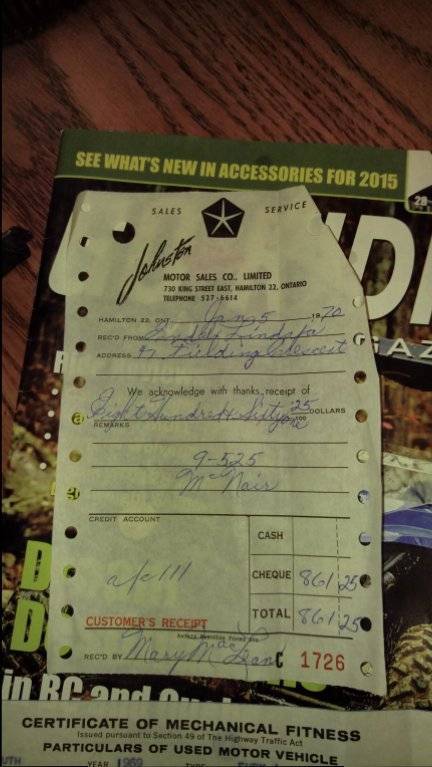 SEE WHAT'S NEW IN ACCESSORIES FOR 2015
SALES SERVICE
Johnston
MOTOR SALES CO., LIMITED
730 KING STREET EAST, HAMILTON 22, ONTARIO
TELEPHONE 527-6614
HAMILTON 22, ONT. Jan 5 1970
REC'D FROM
ADDRESS 97 Fielding Crescent
We acknowledge with thanks, receipt of
Eight Hundred & Sixty one 25/100 DOLLARS
REMARKS
9-525
McNair
CREDIT ACCOUNT
CASH
a/c 111
CHEQUE 861 25
TOTAL 861 25
CUSTOMER'S RECEIPT
REC'D BY Mary MacLean C 1726
in BC and
CERTIFICATE OF MECHANICAL FITNESS
Issued pursuant to Section 49 of The Highway Traffic Act
PARTICULARS OF USED MOTOR VEHICLE
YEAR 1969 TYPE